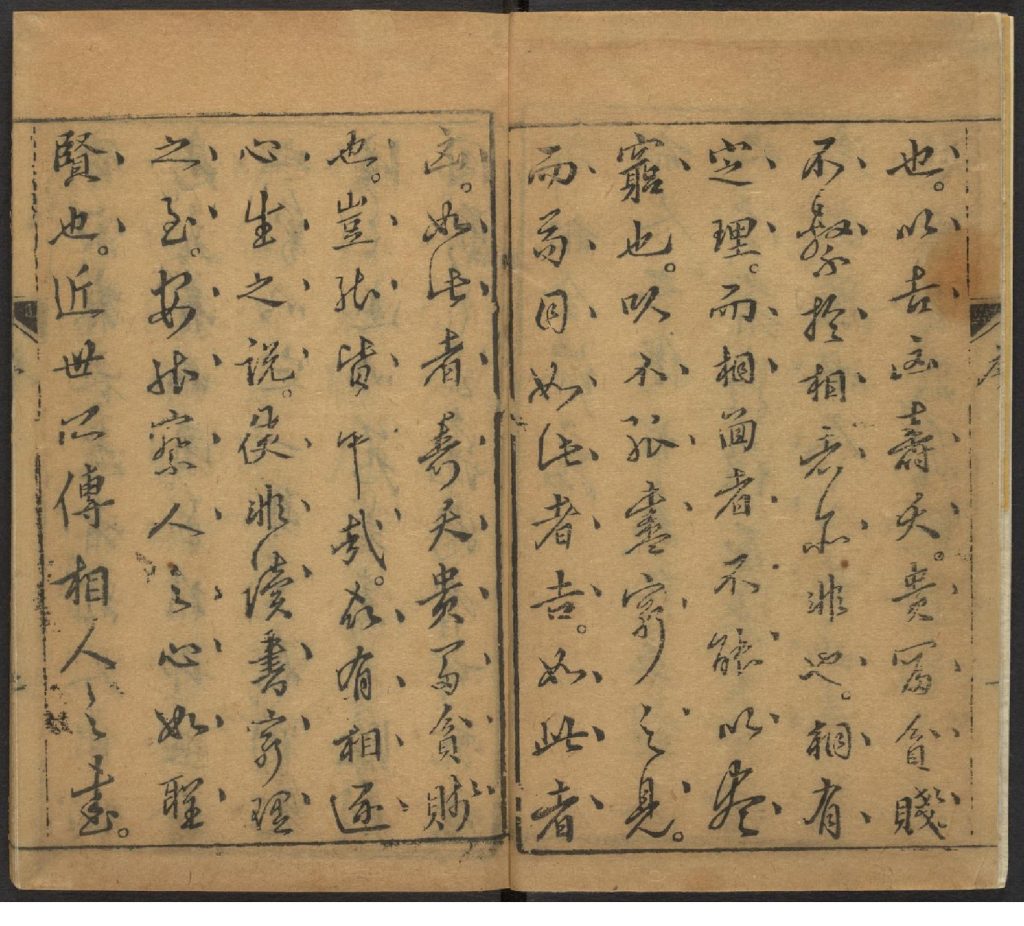 也。以吉凶壽夭。貴富貧賤
不繫於相者亦非也。相有
定理。而相面者不能以盡
窮也。以不能盡窮之見。
而目如此者吉。如此者
凶。如此者壽夭貴富貧賤
也。豈能皆中哉。故有相逐
心生之說。使非讀書窮理
之至。安能察人之心如聖
賢也。近世所傳相人之書。